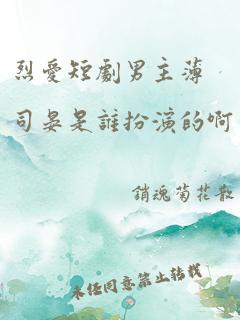 烈愛短劇男主薄
司晏是誰扮演的啊
銷魂菊花散
未经同意禁止转载